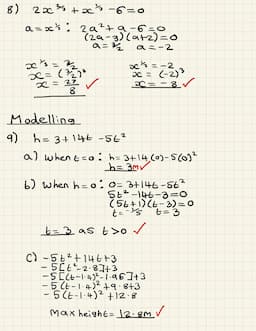 8) 2x^⅔ + x^⅓ - 6 = 0
a = x^⅓ : 2a² + a - 6 = 0
(2a - 3)(a + 2) = 0
a = 3/2 a = -2
x^⅓ = 3/2 x^⅓ = -2
x = (3/2)³ x = (-2)³
x = 27/8 ✓ x = -8 ✓
Modelling
9) h = 3 + 14t - 5t²
a) when t = 0 : h = 3 + 14(0) - 5(0)²
h = 3m ✓
b) when h = 0 : 0 = 3 + 14t - 5t²
5t² - 14t - 3 = 0
(5t + 1)(t - 3) = 0
t = -1/5 t = 3
t = 3 as t > 0 ✓
c) -5t² + 14t + 3
-5[t² - 2.8] + 3
-5[(t - 1.4)² - 1.96] + 3
-5(t - 1.4)² + 9.8 + 3
-5(t - 1.4)² + 12.8
Max height = 12.8m ✓